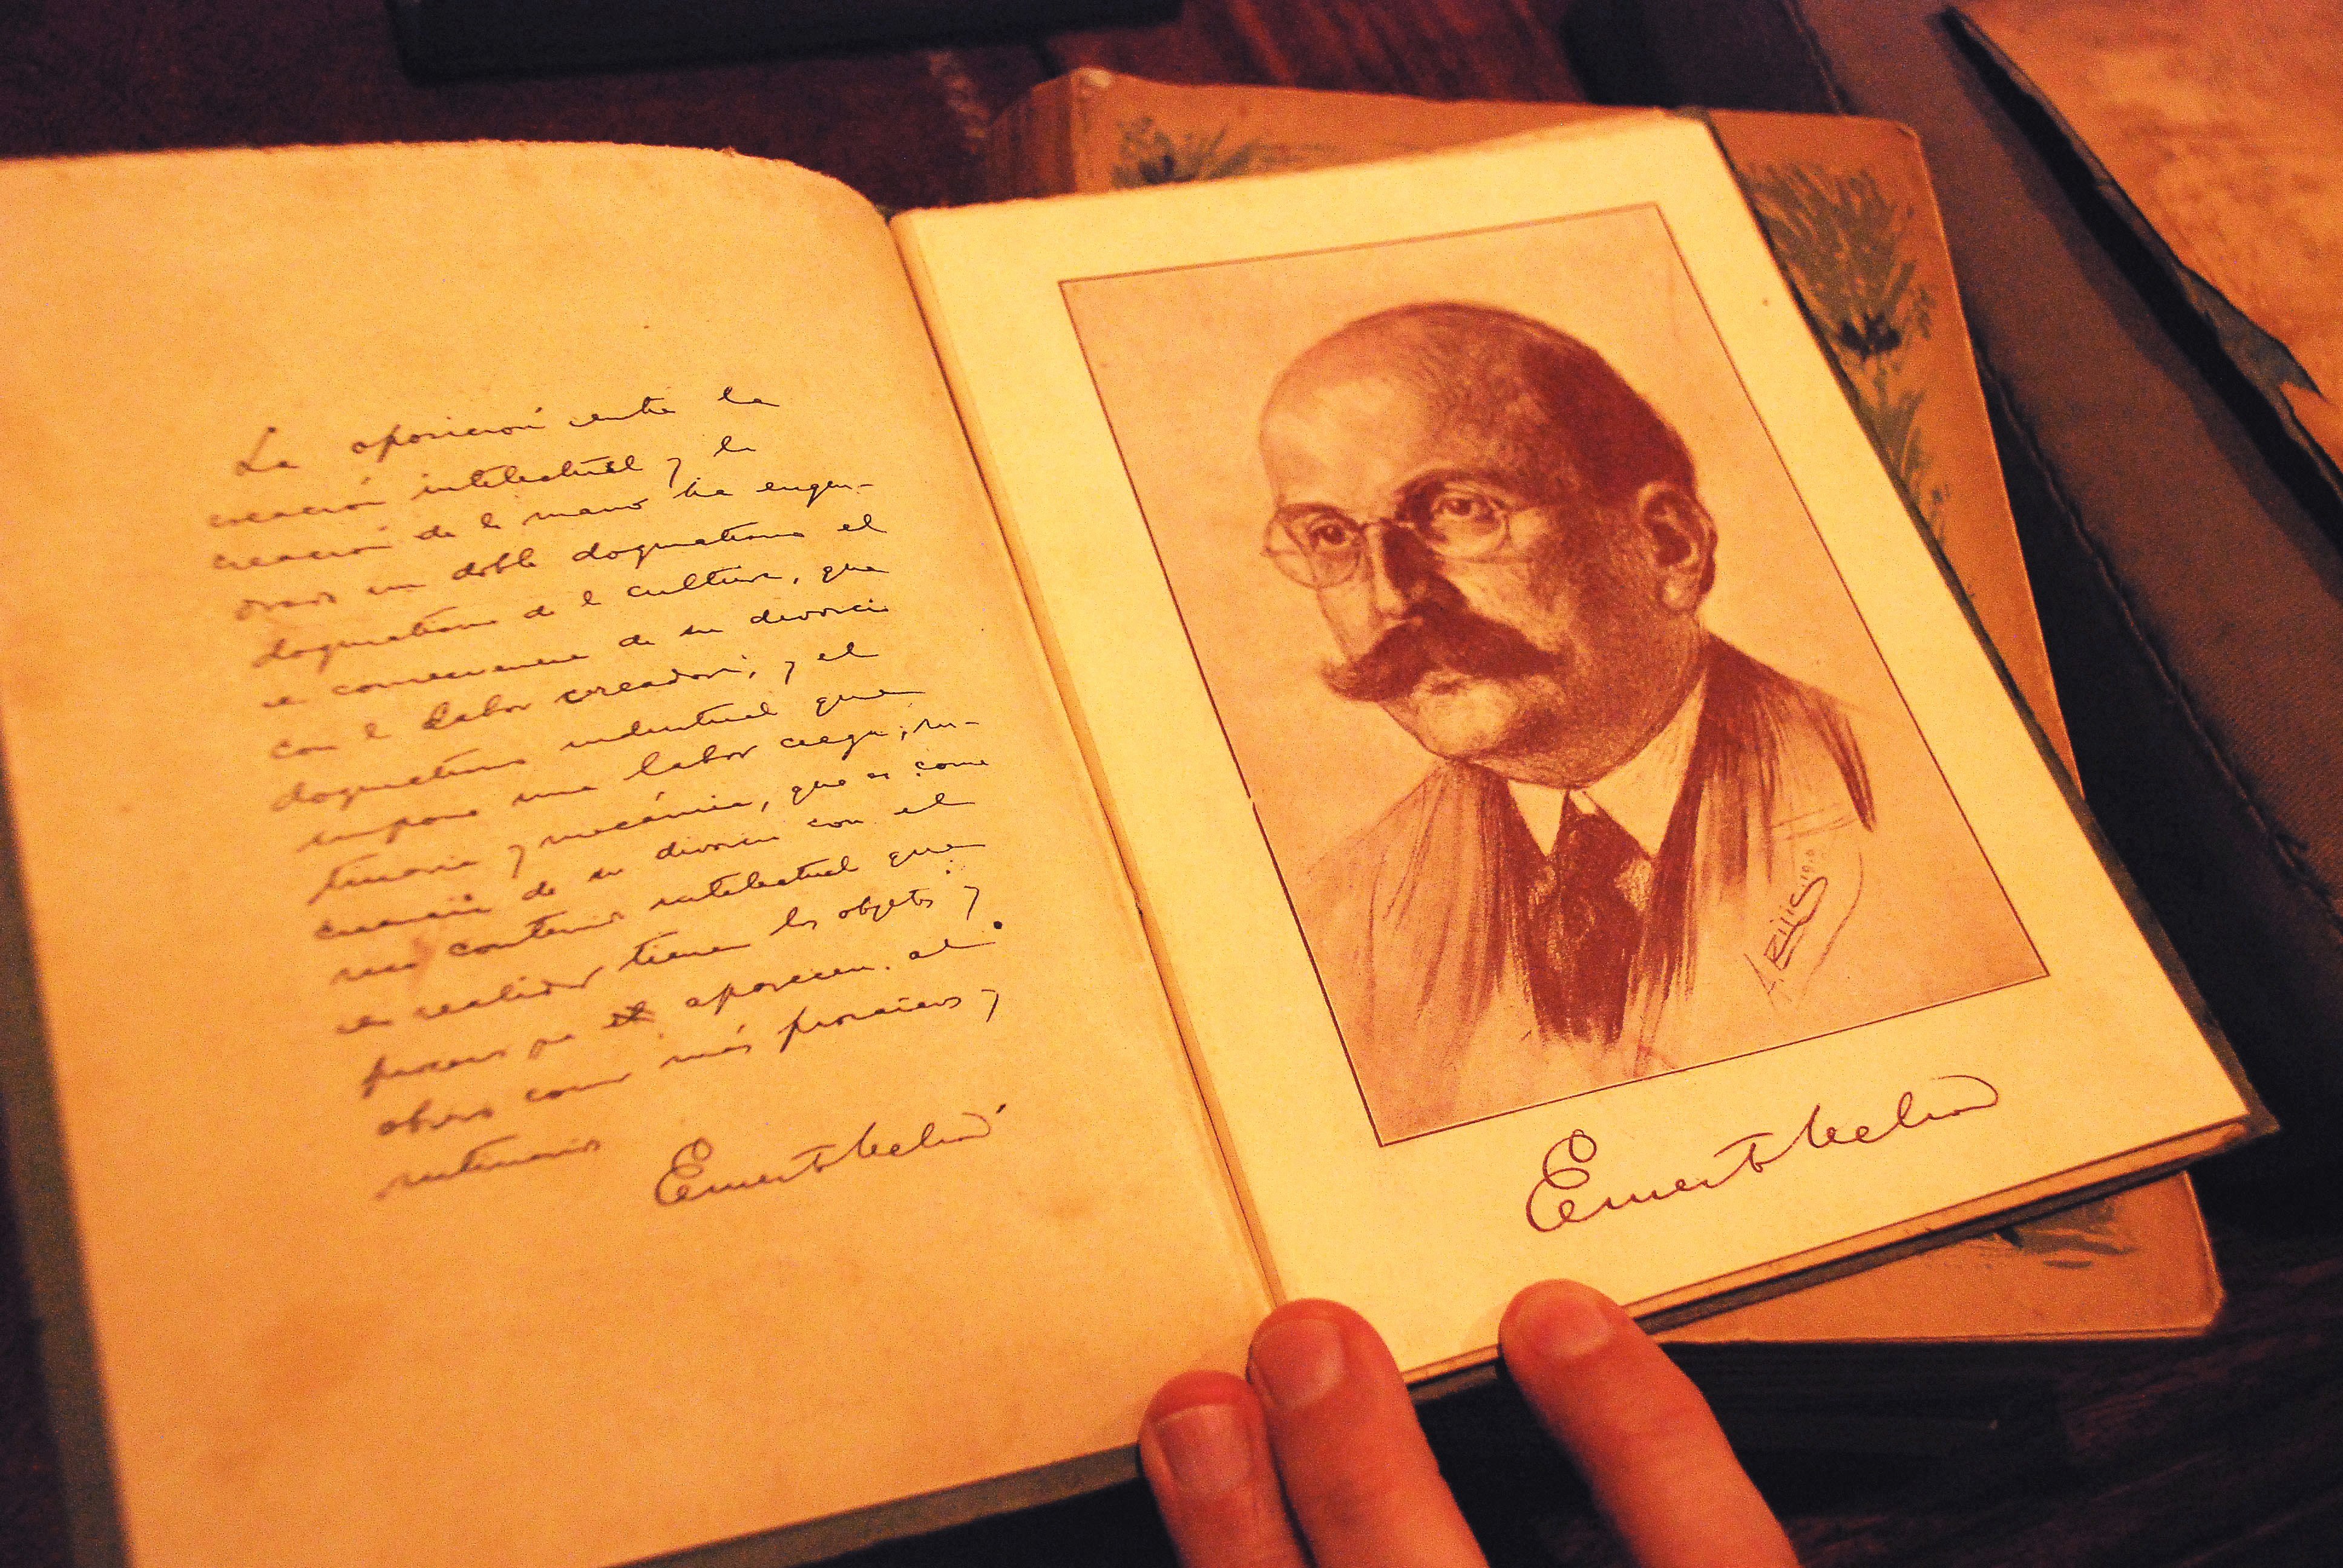 La oposición entre la
creación intelectual y la
creación de la mano ha engen-
drado un doble dogmatismo el
dogmatismo de la cultura, que
es consecuencia de su divorcio
con la labor creadora; y el
dogmatismo industrial que
supone una labor ciega, ru-
tinaria y mecánica, que es conse-
cuencia de su divorcio con el
contenido intelectual que
en realidad tienen los objetos y
procesos que aparecen al
obrero como más prosaicos y
rutinarios
Ernesto Nelson
1919
Ernesto Nelson